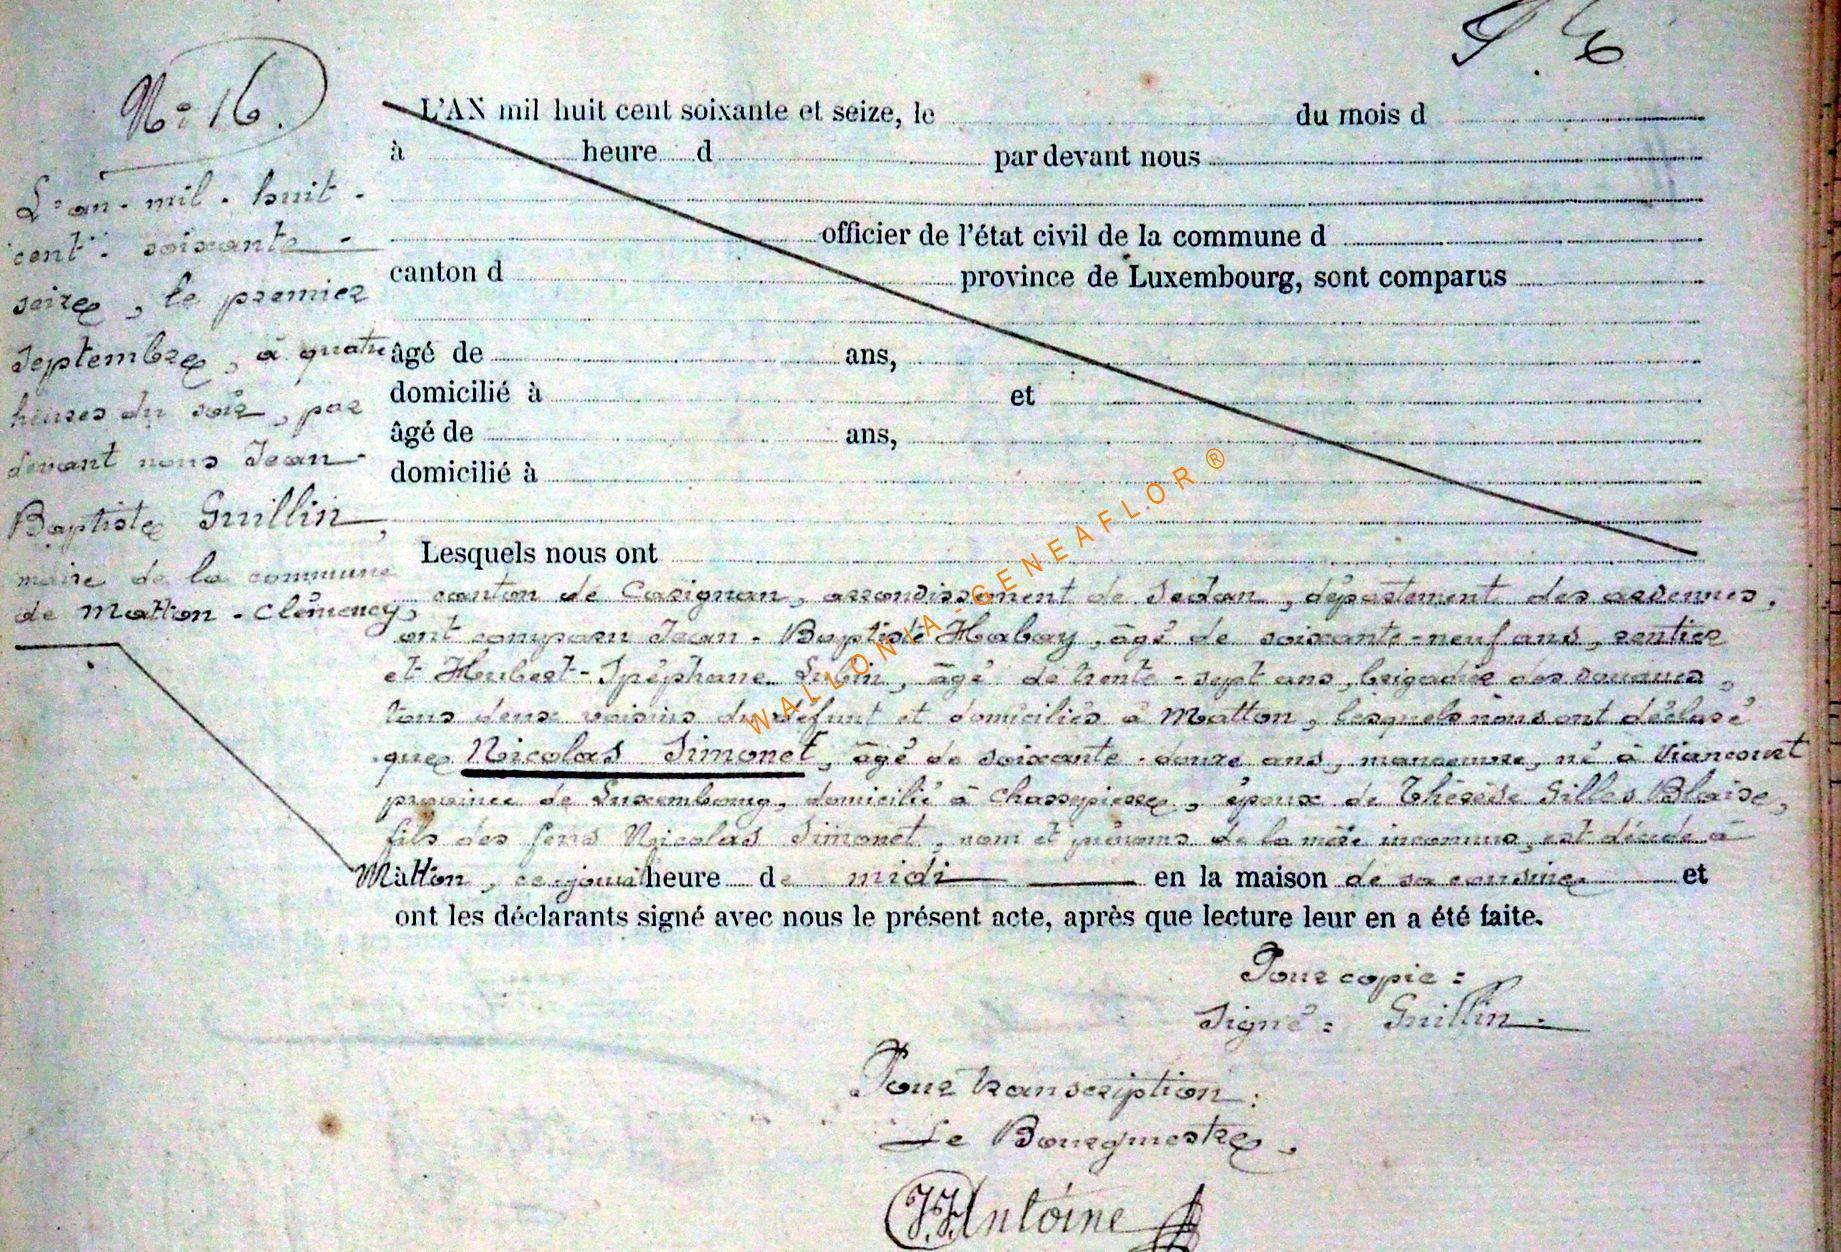 N° 16.
L'an mil huit
cent soixante
seize, le premier
Septembre, à quatre
heures du soir, par
devant nous Jean
Baptiste Guillin,
maire de la commune
de Matton-Clémency,
L'AN mil huit cent soixante et seize, le du mois d
à heure d par devant nous
officier de l'état civil de la commune d
canton d province de Luxembourg, sont comparus
âgé de ans,
domicilié à et
âgé de ans,
domicilié à
Lesquels nous ont
canton de Carignan, arrondissement de Sedan, département des ardennes,
ont comparu Jean-Baptiste Habay, âgé de soixante-neuf ans, rentier
et Hubert-Spéphane Lubin, âgé de trente-sept ans, brigadier des douanes,
tous deux voisins du défunt et domiciliés à Matton, lesquels nous ont déclaré
que Nicolas Simonet, âgé de soixante-douze ans, manoeuvre, né à Viancourt
province de Luxembourg, domicilié à Chassepierre, époux de Thérèse Gilles Blaise,
fils des feus Nicolas Simonet, nom et prénoms de la mère inconnus, est décédé à
Matton, ce jourd'heure de midi en la maison de sa cousine et
ont les déclarants signé avec nous le présent acte, après que lecture leur en a été faite.
Pour copie :
Signé : Guillin.
Pour transcription :
Le Bourgmestre,
J.J. Antoine
WALLONIA-GENEAFLOR ®